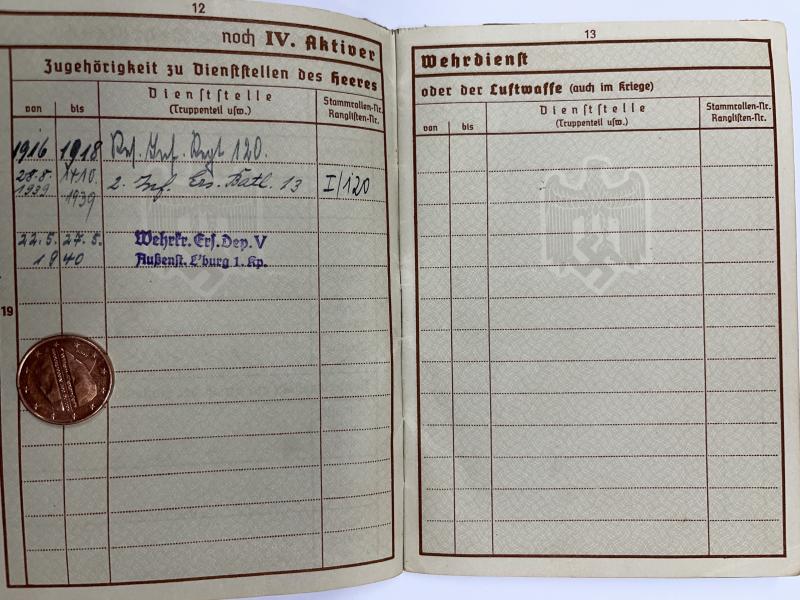 12
noch IV. Aktiver
Zugehörigkeit zu Dienststellen des Heeres
von
bis
Dienststelle
(Truppenteil usw.)
Stammrollen-Nr.
Ranglisten-Nr.
1916 1918 Res. Inf. Regt 120.
28.8. 1939 10. 1939 2. Inf. Ers. Batl. 13 I/120
22.5. 27.5. Wehrkr. Ers. Dep. V
19 40 Außenst. L'burg 1. Kp.
19
13
Wehrdienst
oder der Luftwaffe (auch im Kriege)
von
bis
Dienststelle
(Truppenteil usw.)
Stammrollen-Nr.
Ranglisten-Nr.